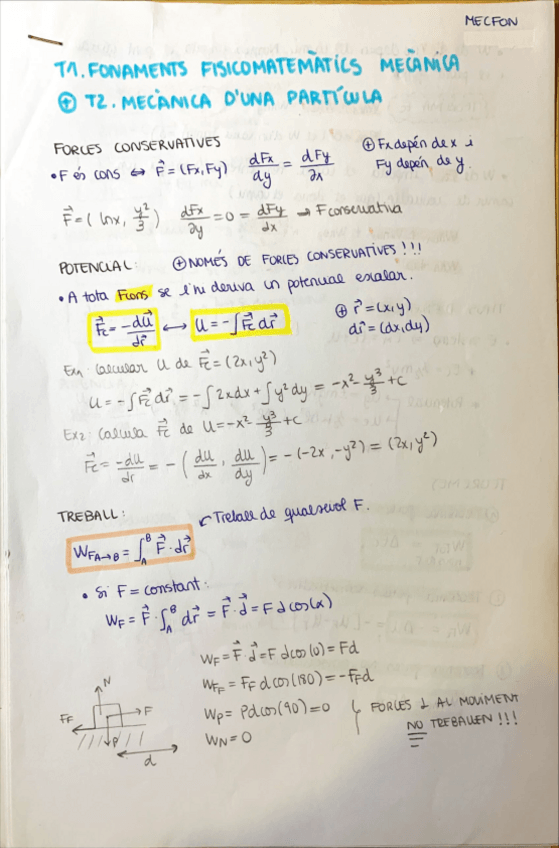 MECFON
T1. FONAMENTS FISICOMATEMÀTICS MECÀNICA
⊕ T2. MECÀNICA D'UNA PARTÍCULA
FORCES CONSERVATIVES
• F és cons ⇔ F⃗ = (Fx, Fy) dFx/dy = dFy/dx ⊕ Fx depén de x i
Fy depén de y.
F⃗ = (lnx, y²/3) dFx/dy = 0 = dFy/dx ⇒ F conservativa
POTENCIAL: ⊕ NOMÉS DE FORCES CONSERVATIVES !!!
• A tota Fcons se l'hi deriva un potencial escalar.
F⃗c = -dU⃗/dr⃗ ⟷ U = -∫F⃗c dr⃗ ⊕ r⃗ = (x,y)
dr⃗ = (dx, dy)
Ex1: Calcular U de F⃗c = (2x, y²)
U = -∫F⃗c dr⃗ = -∫2xdx + ∫y²dy = -x² - y³/3 + C
Ex2: Calcula F⃗c de U = -x² - y³/3 + C
F⃗c = -dU/dr = -(dU/dx, dU/dy) = -(-2x, -y²) = (2x, y²)
TREBALL: ↙ Treball de qualsevol F.
W_FA→B = ∫_A^B F⃗ · dr⃗
• Si F = constant:
W_F = F⃗ · ∫_A^B dr⃗ = F⃗ · d⃗ = F d cos(α)
W_F = F⃗ · d⃗ = F d cos(0) = Fd
W_FF = F_F d cos(180) = -F_F d
W_P = Pd cos(90) = 0 FORCES ⊥ AL MOVIMENT
NO TREBALLEN !!!
W_N = 0
N
F_F
F
P
d